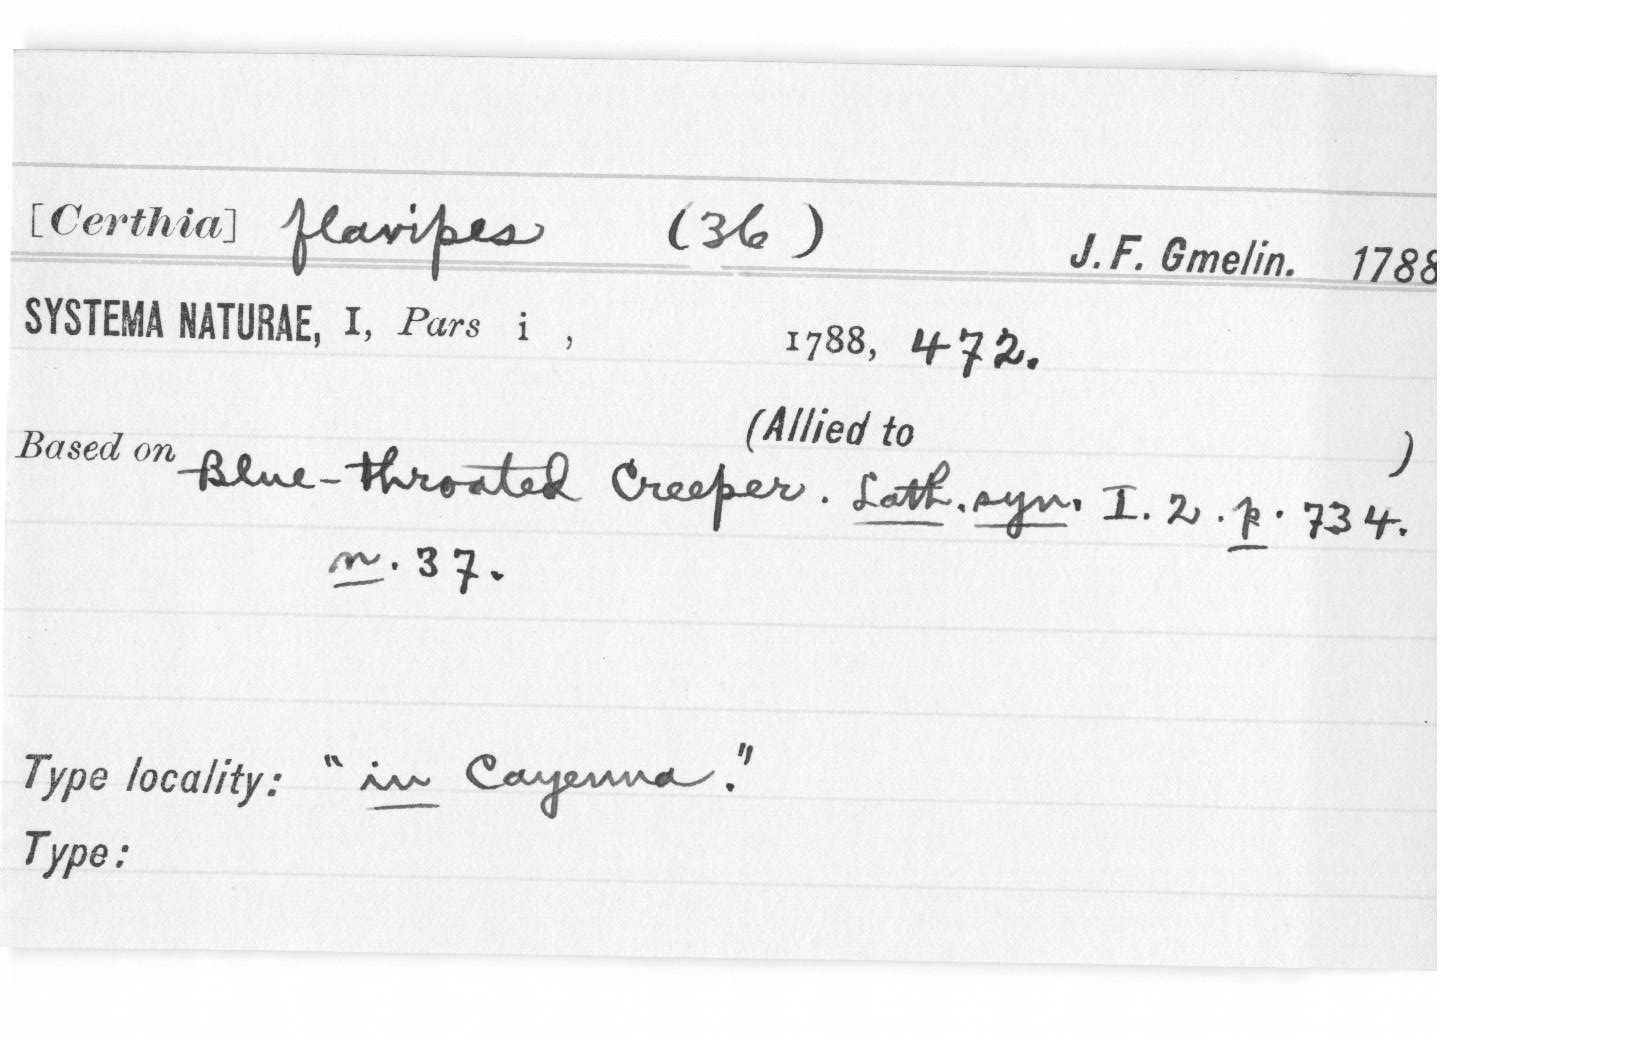 [Certhia] flavipes (36) J. F. Gmelin. 1788
SYSTEMA NATURAE, I, Pars i , 1788, 472.
(Allied to )
Based on Blue-throated Creeper. Lath. syn. I. 2. p. 734.
n. 37.
Type locality: "in Cayenna."
Type: